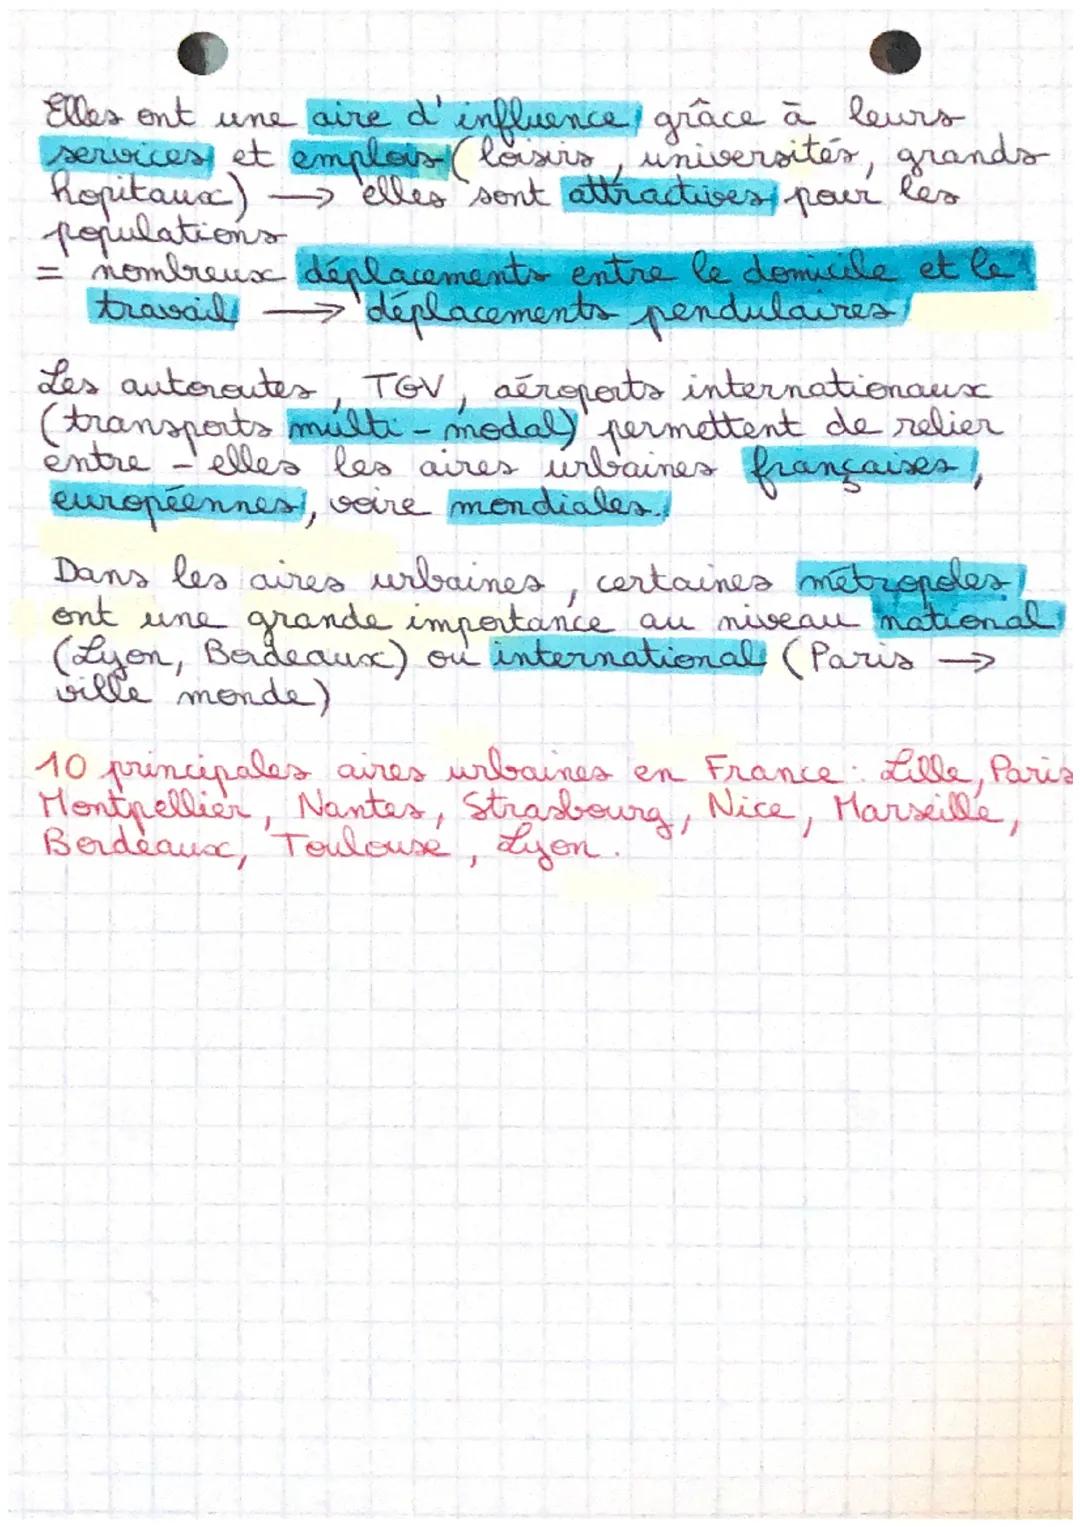 Elles ont une aire d'influence grâce à leurs
services et emplois (loisirs, universités, grands
hopitaux) → elles sont attractives pour les
populations
= nombreux déplacements entre le domicile et le
travail → déplacements pendulaires
Les autoroutes, TGV, aéroports internationaux
(transports multi-modal) permettent de relier
entre-elles les aires urbaines françaises,
européennes, voire mondiales.
Dans les aires urbaines, certaines métropoles
ont une grande importance au niveau national
(Lyon, Bordeaux) ou international (Paris →
ville monde)
10 principales aires urbaines en France : Lille, Paris
Montpellier, Nantes, Strasbourg, Nice, Marseille,
Bordeaux, Toulouse, Lyon.